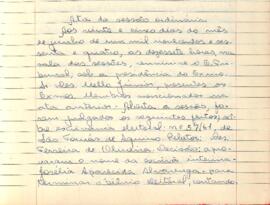 Ata da sessão ordinária
Aos vinte e cinco dias do mês
de junho de um mil novecentos e ses-
senta e quatro, às dezessete horas, na
sala das sessões, reuniu-se o Tri-
bunal, sob a presidência do Exmo.
Sr. Des. Mello, presentes os
Exmos. Membros mencionados na
ata anterior. Aberta a sessão, fo-
ram julgados os seguintes feitos:
escrivania eleitoral: nº 37/64, de
São Tomás de Aquino. Relator: Des.
Ferreira de Oliveira. Decisão: apro-
varam o nome da escrivã interina
Aparecida Alvarenga, para
eleitoral, contando